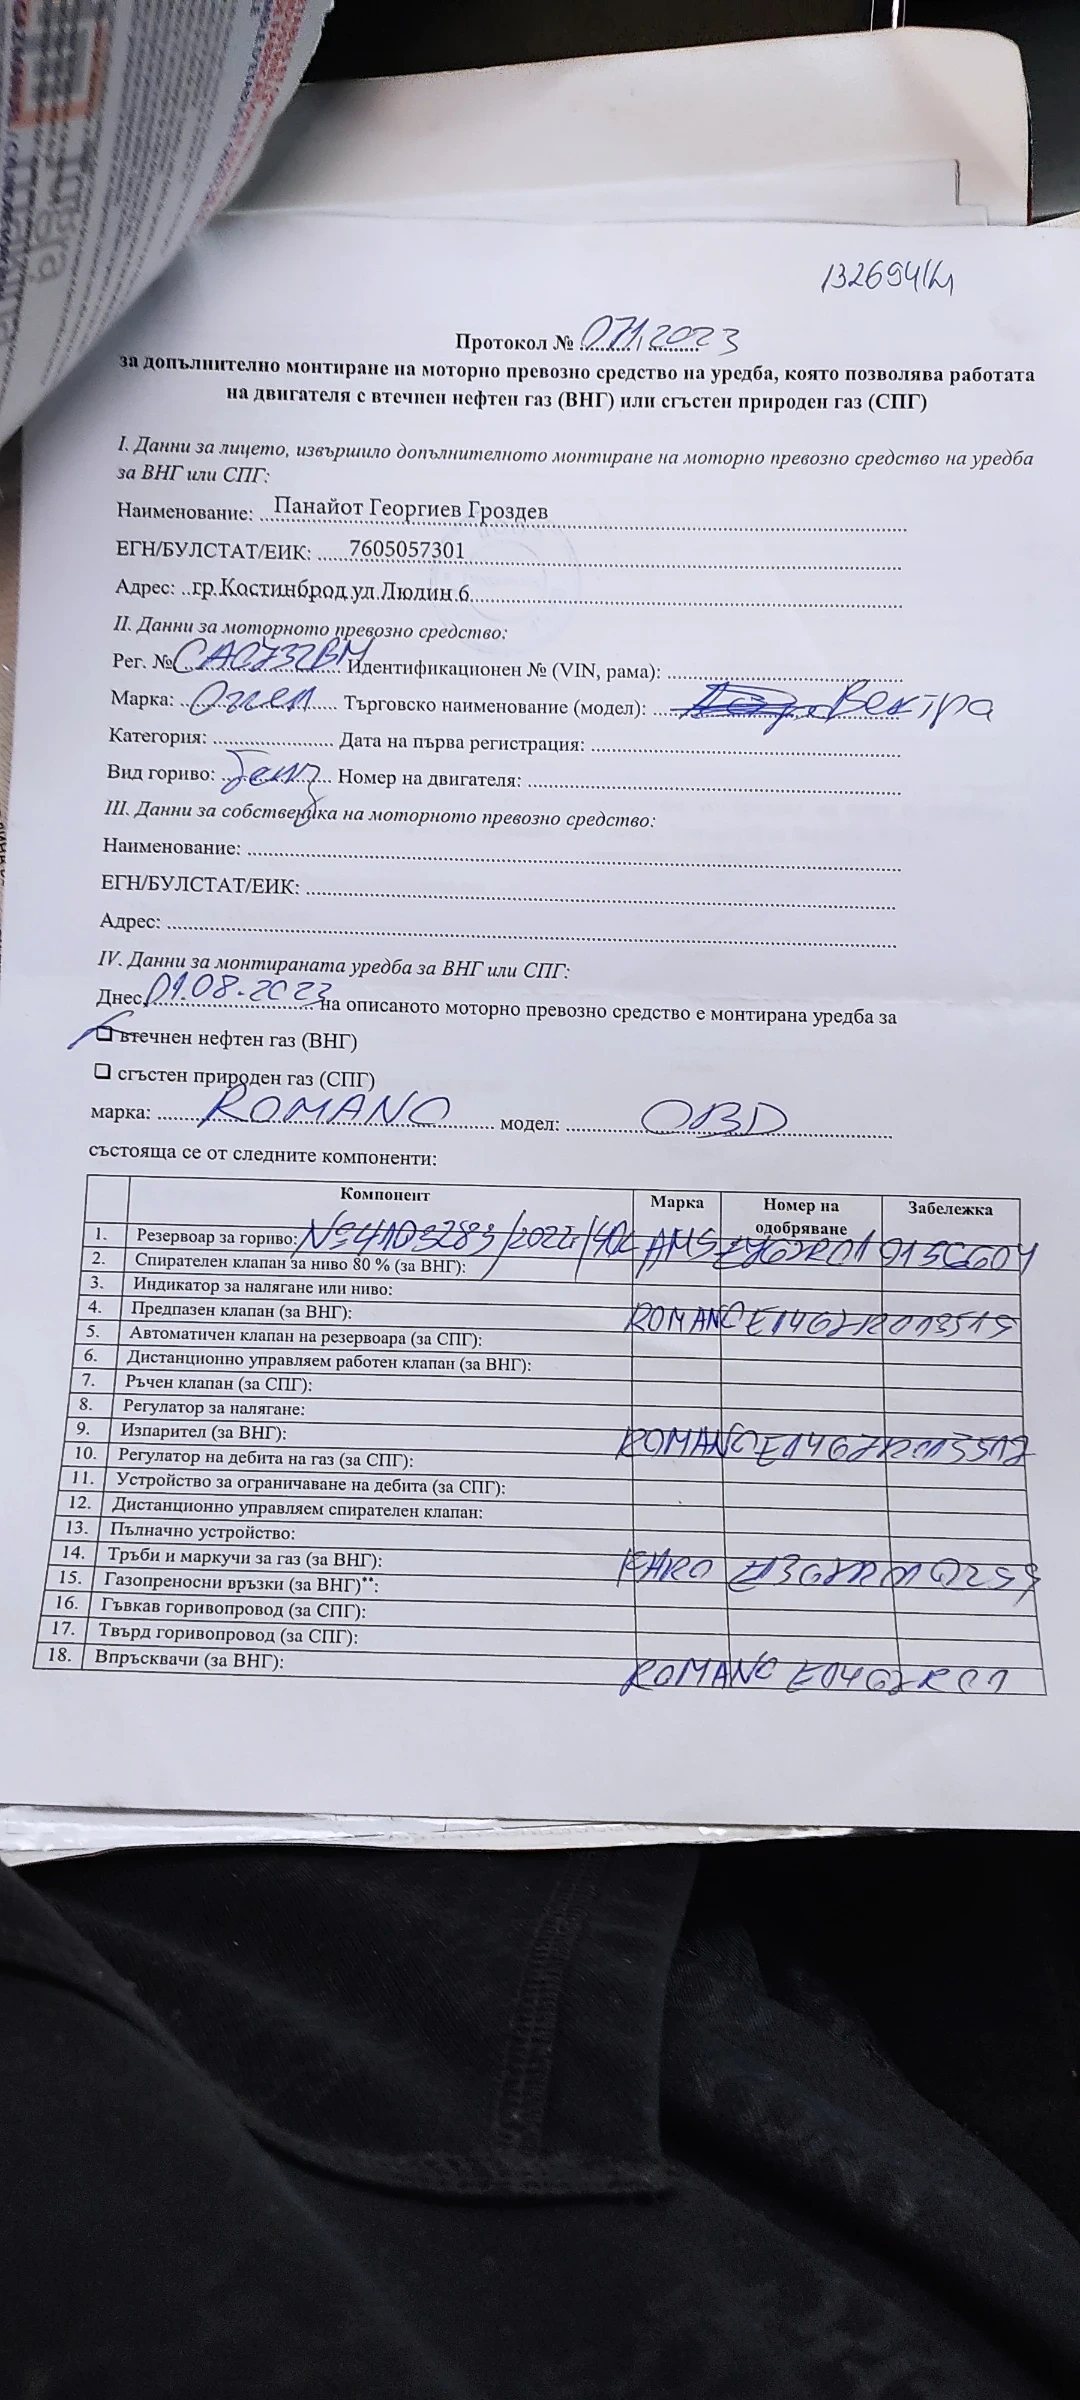 132694/LA
Протокол № 071, 2023
за допълнително монтиране на моторно превозно средство на уредба, която позволява работата
на двигателя с втечнен нефтен газ (ВНГ) или сгъстен природен газ (СПГ)
I. Данни за лицето, извършило допълнителното монтиране на моторно превозно средство на уредба
за ВНГ или СПГ:
Наименование: Панайот Георгиев Гроздев
ЕГН/БУЛСТАТ/ЕИК: 7605057301
Адрес: гр.Костинброд ул.Люлин 6
II. Данни за моторното превозно средство:
Рег. № СА0732ВМ Идентификационен № (VIN, рама):
Марка: Опел Търговско наименование (модел): Вектра
Категория: Дата на първа регистрация:
Вид гориво: Бенз Номер на двигателя:
III. Данни за собственика на моторното превозно средство:
Наименование:
ЕГН/БУЛСТАТ/ЕИК:
Адрес:
IV. Данни за монтираната уредба за ВНГ или СПГ:
Днес, 01.08.2023 на описаното моторно превозно средство е монтирана уредба за
втечнен нефтен газ (ВНГ)
сгъстен природен газ (СПГ)
марка: ROMANO модел: OBD
състояща се от следните компоненти:
Компонент Марка Номер на одобряване Забележка
1. Резервоар за гориво: AMS
2. Спирателен клапан за ниво 80 % (за ВНГ):
3. Индикатор за налягане или ниво:
4. Предпазен клапан (за ВНГ): ROMANO E1467R013515
5. Автоматичен клапан на резервоара (за СПГ):
6. Дистанционно управляем работен клапан (за ВНГ):
7. Ръчен клапан (за СПГ):
8. Регулатор за налягане:
9. Изпарител (за ВНГ): ROMANO E1467R013512
10. Регулатор на дебита на газ (за СПГ):
11. Устройство за ограничаване на дебита (за СПГ):
12. Дистанционно управляем спирателен клапан:
13. Пълначно устройство:
14. Тръби и маркучи за газ (за ВНГ): FARO
15. Газопреносни връзки (за ВНГ)**:
16. Гъвкав горивопровод (за СПГ):
17. Твърд горивопровод (за СПГ):
18. Впръсквачи (за ВНГ): ROMANO E1467R01